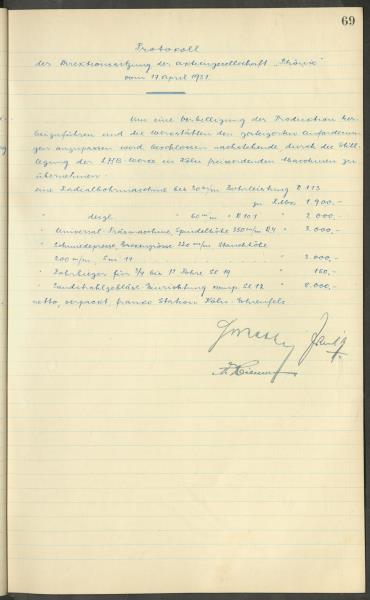 69
Protokoll
der Direktionssitzung der Aktiengesellschaft „Phönix"
vom 17. April 1931.
Um eine Verbilligung der Produktion her-
beizuführen und die Werkstätten den gesteigerten Anforderun-
gen anzupassen wird beschlossen nachstehende, durch die Still-
legung der LHB-Werke in Köln freiwerdenden Maschinen zu
übernehmen:
eine Radialbohrmaschine bis 30 m/m Bohrleistung R 113
zu RMk 1.900,-
" dergl. " 60 m/m " R 101 " 2.000,-
" Universal-Fräsmaschine, Spindelhöhe 350 m/m " 3.000,-
" Schmiedepresse, 220 m/m
200 m/m, 11 " 3.000,-
" Rohrbieger für 3/4 bis 1" Rohre " 150,-
" Sandstrahlgebläse Einrichtung " 8.000,-
netto, verpackt, franko Station Köln-Ehrenfeld